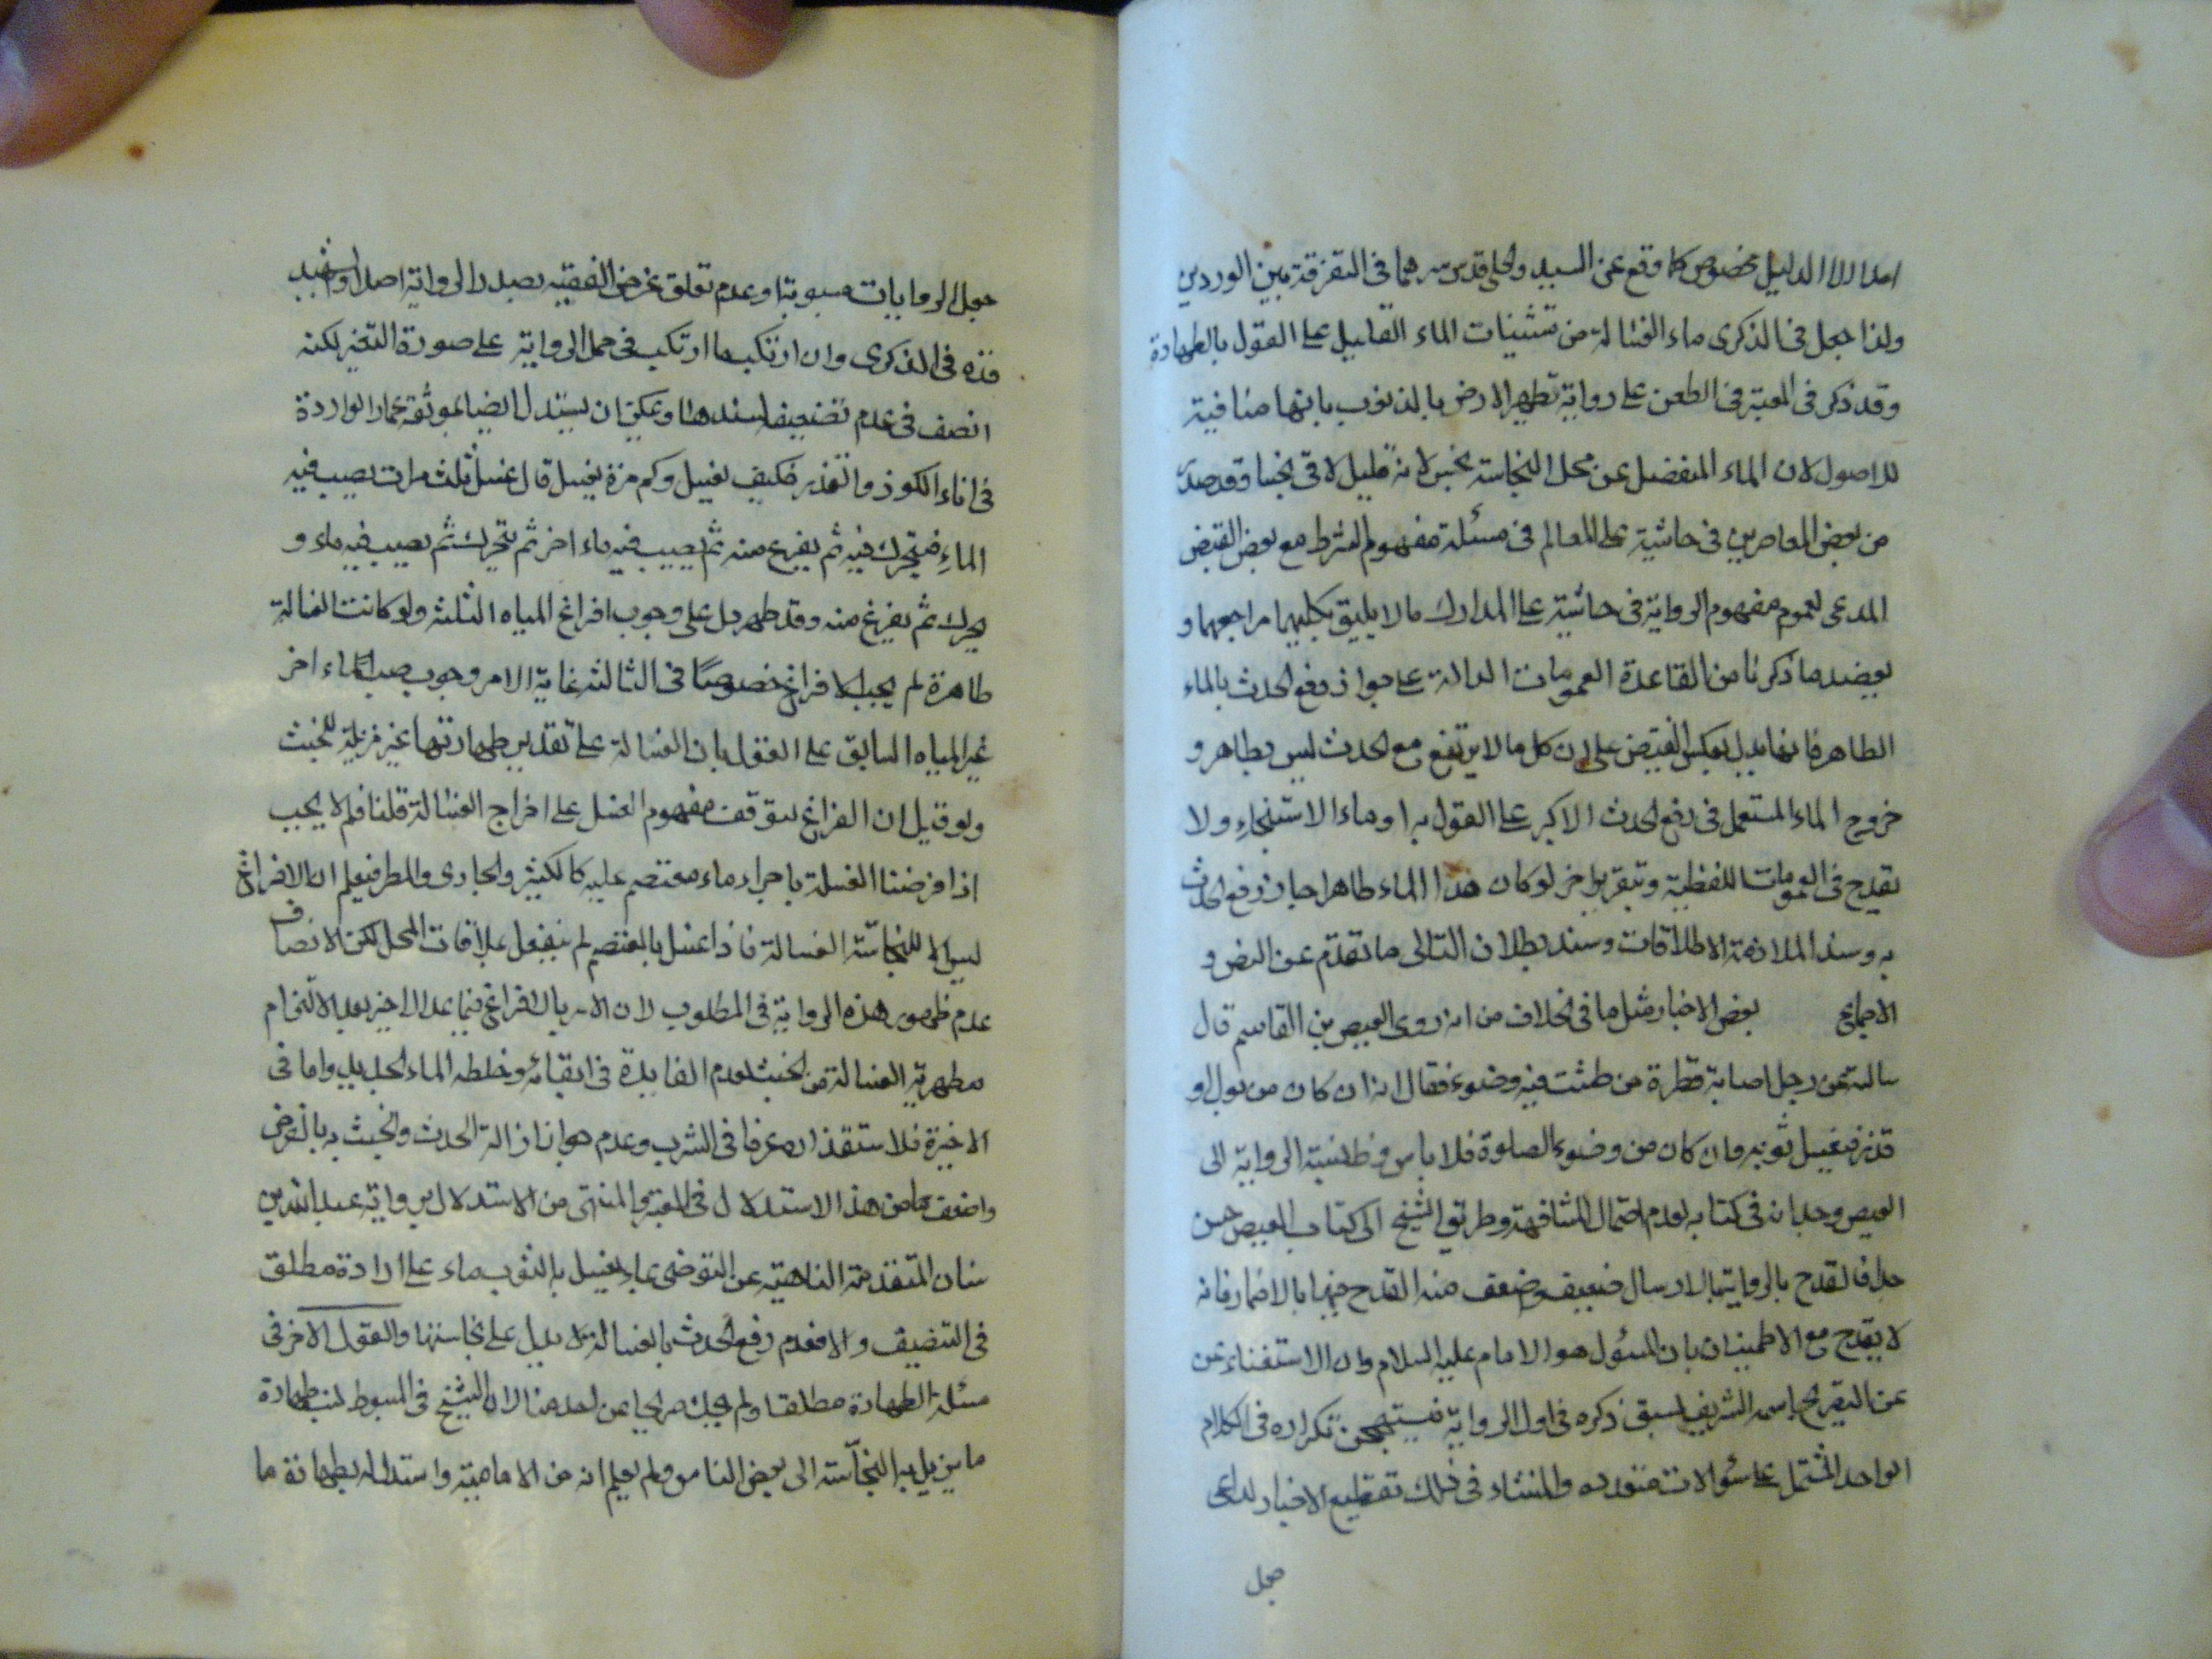 احدا الا الدليل مخصوص كما وقع عن السيد والحلى قدس سرهما فى التفرقة بين الوردين
ولذا جعل فى الذكرى ماء الغسالة من مستثنيات الماء القليل على القول بالطهارة
وقد ذكر فى المعتبر فى الطعن على رواية تطهير الارض بالذنوب بانها منافية
للاصول لان الماء المنفصل عن محل النجاسة نجس لانه قليل لاقى نجسا وقد صدر
من بعض المعاصرين فى حاشية على المعالم فى مسئلة مفهوم الشرط مع بعض القبض
المدعى لعموم مفهوم الرواية فى حاشية على المدارك ما لا يليق بكليهما مراجعهما و
يعضد ما ذكرنا من القاعدة العمومات الدالة على جواز رفع الحدث بالماء
الطاهر فانها يدل بعكس النقيض على ان كل ما لا يرتفع مع الحدث ليس بطاهر و
خروج الماء المستعمل فى رفع الحدث الاكبر على القول به او ماء الاستنجاء ولا
يقدح فى العمومات اللفظية وبتقرير اخر لو كان هذا الماء طاهرا جاز رفع الحدث
به وسند الملازمة الاطلاقات وسند بطلان التالى ما تقدم عن النص و
الاجماع بعض الاخبار مثل ما فى الخلاف من انه روى العيص بن القاسم قال
سالته عن رجل اصابه قطرة من طشت فيه وضوء فقال انه ان كان من بول او
قذر فيغسل ثوبه وان كان من وضوء الصلوة فلا باس وظنية الرواية الى
العيص وجدانه فى كتابه لعدم احتمال المشافهة وطريق الشيخ الى كتاب العيص حسن
القدح بالرواية بالارسال ضعيف وضعف منه القدح فيها بالاضمار فانه
لا يقدح مع الاطمينان بان المسؤل هو الامام عليه السلام وان الاستغناء عن
عن التصريح باسمه الشريف لسبق ذكره فى اول الرواية فيستهجن تكراره فى الكلام
الواحد المشتمل على سؤالات متعدده والمنشاء فى ذلك تقطيع الاخبار لداعى
جعل
جعل الروايات مبوبة او عدم تعلق غرض الفقيه بصدر الرواية اصلا والشهيد
فى الذكرى وان ارتكب ما ارتكب فى حمل الرواية على صورة التغير لكنه
انصف فى عدم تضعيف سندها ويمكن ان يستدل ايضا بموثقة عمار الواردة
فى اناء الكوز والقذر فكيف يغسل وكم مرة يغسل قال غسل ثلث مرات يصب فيه
الماء فيتحرك فيه ثم يفرغ منه ثم يصب فيه ماء اخر ثم يتحرك ثم يصب فيه ماء و
يحرك ثم يفرغ منه وقد طهر دل على وجوب افراغ المياه الثلثة ولو كانت الغسالة
طاهرة لم يجب الافراغ خصوصا فى الثالثة غاية الامر وجوب صب الماء اخر
غير المياه السابق على القول بان الغسالة على تقدير طهارتها غير مزيلة للخبث
ولو قيل ان الفراغ لتوقف مفهوم الغسل على اخراج الغسالة قلنا فلم لا يجب
اذا فرضنا الغسلة باجراء ماء معتصم عليه كالكثير والجارى والمطر فيعلم ان الافراغ
ليس الا للنجاسة الغسالة فاذا غسل بالمعتصم لم ينفعل بملاقات المحل لكن الانصاف
عدم ظهور هذه الرواية فى المطلوب لان الامر بالافراغ فيما عدا الاخير بعد الالتزام
مطهرية الغسالة من الخبث لعدم الفايدة فى ابقائه وخلطه الماء الجديد واما فى
الاخيرة فلاستقذاره عرفا فى الشرب وعدم جواز ازالة الحدث والخبث به بالفرض
واضعف من هذا الاستدلال فى المعتبر والمنتهى من الاستدلال برواية عبد الله بن
سنان المتقدمة الناهية عن التوضى بماء يغسل به الثوب بناء على ارادة مطلق
فى التضيف والا فعدم رفع الحدث بالغسالة لا يدل على نجاستها والقول الاخر فى
مسئلة الطهارة مطلقا ولم يحك صريحا عن احد منا الا ان الشيخ فى المبسوط نسب طهارة
ما يزيل به النجاسة الى بعض الناس ولم يعلم انه من الامامية واستدل له بطهارة ما